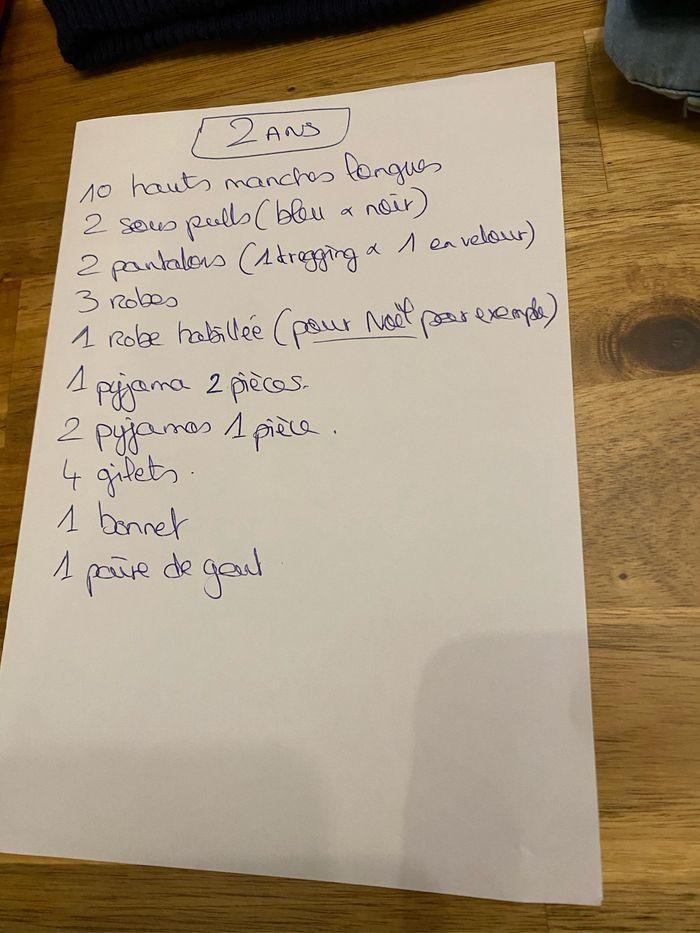 2 ANS
10 hauts manches longues
2 sous pulls (bleu & noir)
2 pantalons (1 tregging & 1 en velour)
3 Robes
1 Robe habillée (pour Noël par exemple)
1 pyjama 2 pièces.
2 pyjamas 1 pièce.
4 gilets.
1 bonnet
1 paire de gant